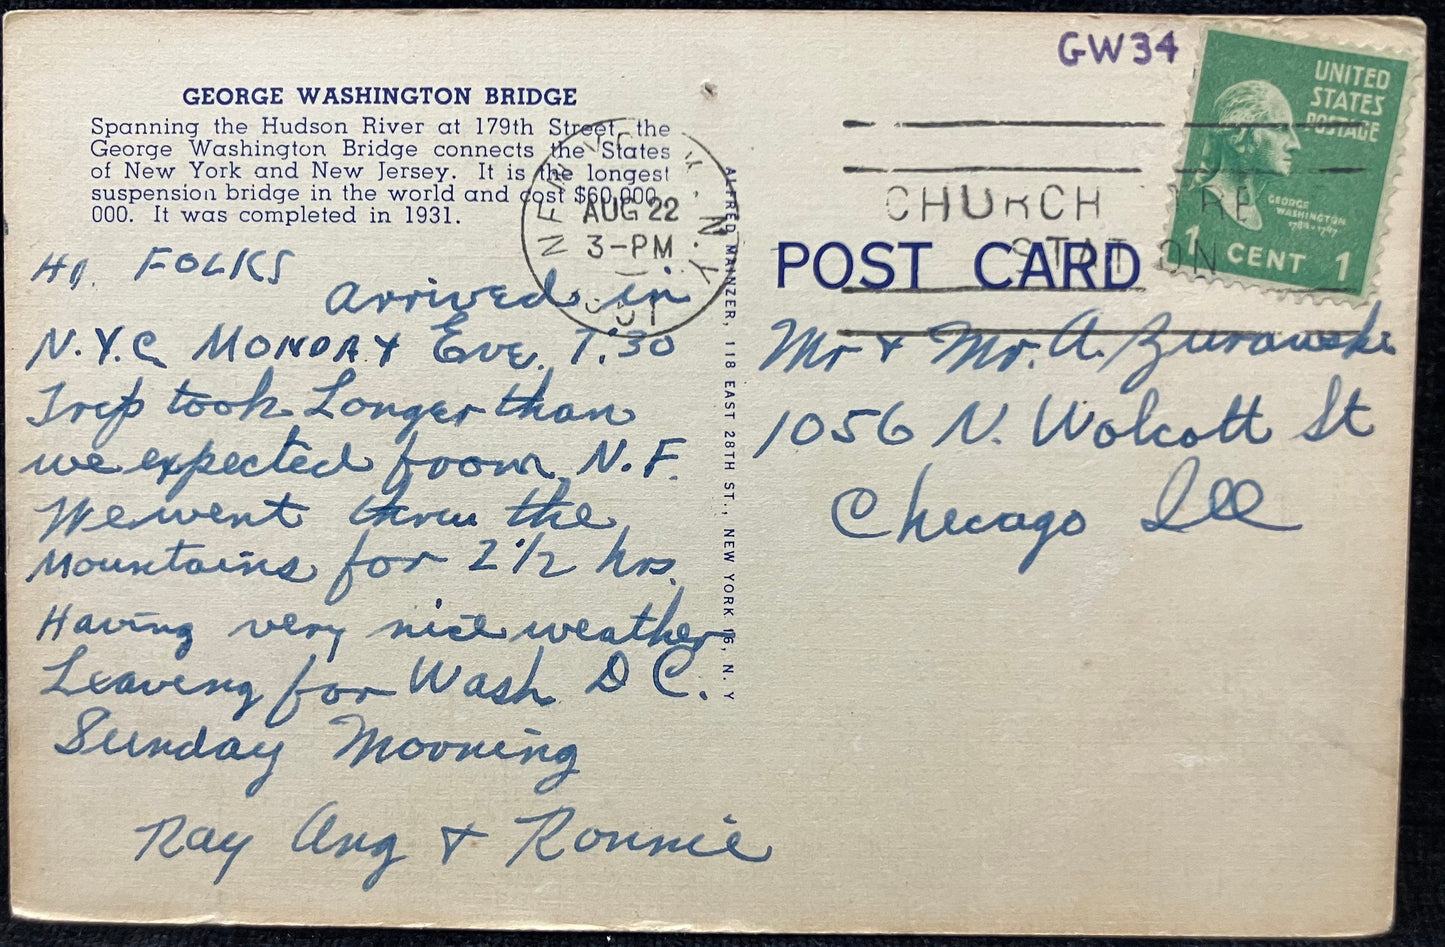 GEORGE WASHINGTON BRIDGE
Spanning the Hudson River at 179th Street, the
George Washington Bridge connects the States
of New York and New Jersey. It is the longest
suspension bridge in the world and cost $60,000
000. It was completed in 1931.
HI. FOLKS
Arrived in
N.Y.C. MONDAY Eve. 7:30
Trip took Longer than
we expected from N.F.
We went thru the
Mountains for 2 1/2 hrs.
Having very nice weather
Leaving for Wash D C.
Sunday Morning
Ray Ang & Ronnie
ALFRED MAINZER, 118 EAST 28TH ST., NEW YORK 16, N. Y
NEW YORK, N.Y.
AUG 22
3-PM
GW34
CHURCH
STATION
UNITED
STATES
POSTAGE
GEORGE
WASHINGTON
1 CENT 1
POST CARD
Mr & Mr. A. Zurawski
1056 N. Wolcott St
Chicago Ill